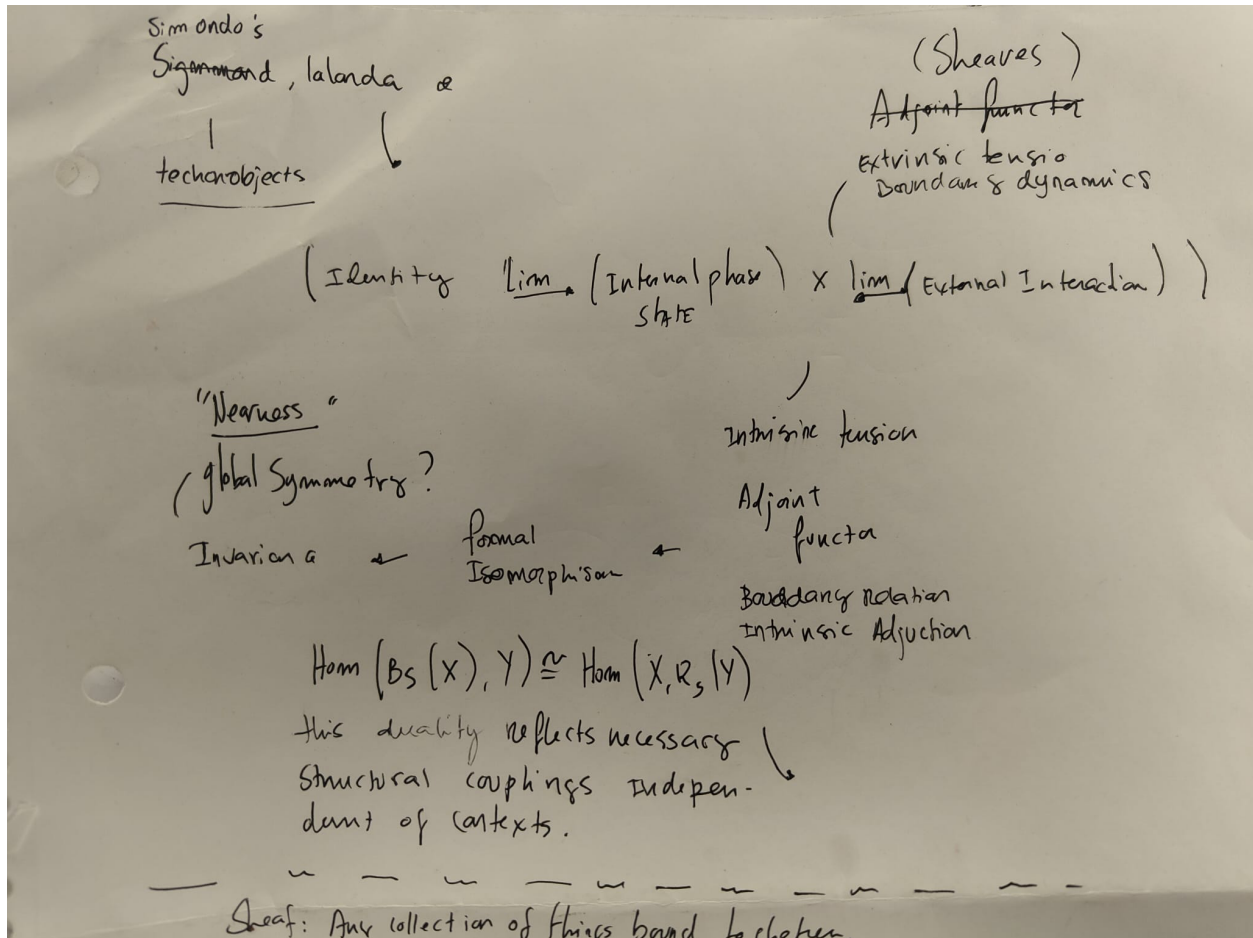 Simondo's
Sigmmond, lalanda &
techonobjects
(Sheaves)
Adjoint functor
Extrinsic tensio
Boundary dynamics
(Identity Lim (Internal phase) x lim (External Interaction))
STATE
"Nearness"
global Symmetry?
Intrinsic tension
Adjoint
functor
Invarian a ← formal
Isomorphism ←
Bouddary relation
Intrinsic Adjuction
Hom (Bs (X), Y) ≅ Hom (X, Rs (Y)
this duality reflects necessary
Structural couplings indepen-
dent of contexts.
Sheaf: Any collection of things bound together